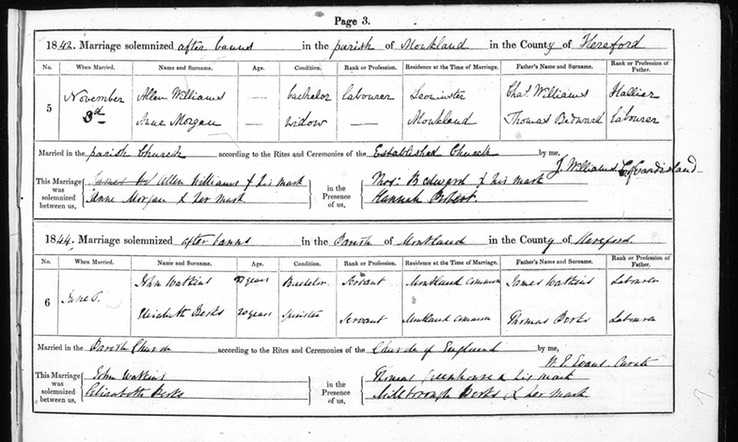 Page 3.
1842. Marriage solemnized after banns in the parish of Monkland in the County of Hereford
No. When Married. Name and Surname. Age. Condition. Rank or Profession. Residence at the Time of Marriage. Father's Name and Surname. Rank or Profession of Father.
5 November 3d Allen Williams — bachelor labourer Leominster Chas. Williams Hallier
Anne Morgan — widow — Monkland Thomas Bedward labourer
Married in the parish Church according to the Rites and Ceremonies of the Established Church by me, J. Williams
This Marriage was solemnized between us, Allen Williams x his mark in the Presence of us, Thos: Bedward x his mark
Anne Morgan x her mark Hannah
1844. Marriage solemnized after banns in the Parish of Monkland in the County of Hereford.
No. When Married. Name and Surname. Age. Condition. Rank or Profession. Residence at the Time of Marriage. Father's Name and Surname. Rank or Profession of Father.
6 John Watkins years Bachelor Servant Monkland Common James Watkins Labourer
Elizabeth Berks 20 years Spinster Servant Monkland Common Thomas Berks Labourer
Married in the Parish Church according to the Rites and Ceremonies of the Church of England by me, W. E. Evans Curate
This Marriage was solemnized between us, John Watkins in the Presence of us, Thomas Greenhouse x his mark
Elizabeth Berks Millborough Berks x her mark